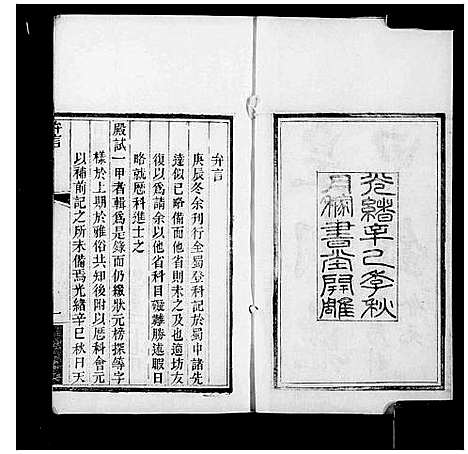 光緒辛巳季秋
月 書堂開雕
弁言
庚辰冬余刊行全蜀登科記於蜀中諸先
達似已略備而他省則未之及也適坊友
復以為請余以他省科目礙難勝述暇日
略就歷科進士之
殿試一甲者輯為是錄而仍綴狀元榜探等字
樣於上期於雅俗共知後附以歷科會元
以補前記之所未備焉光緒辛巳秋日天
弁言